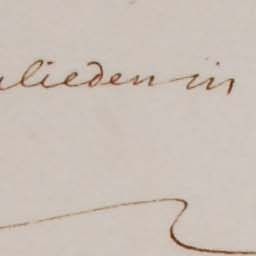 lieden in